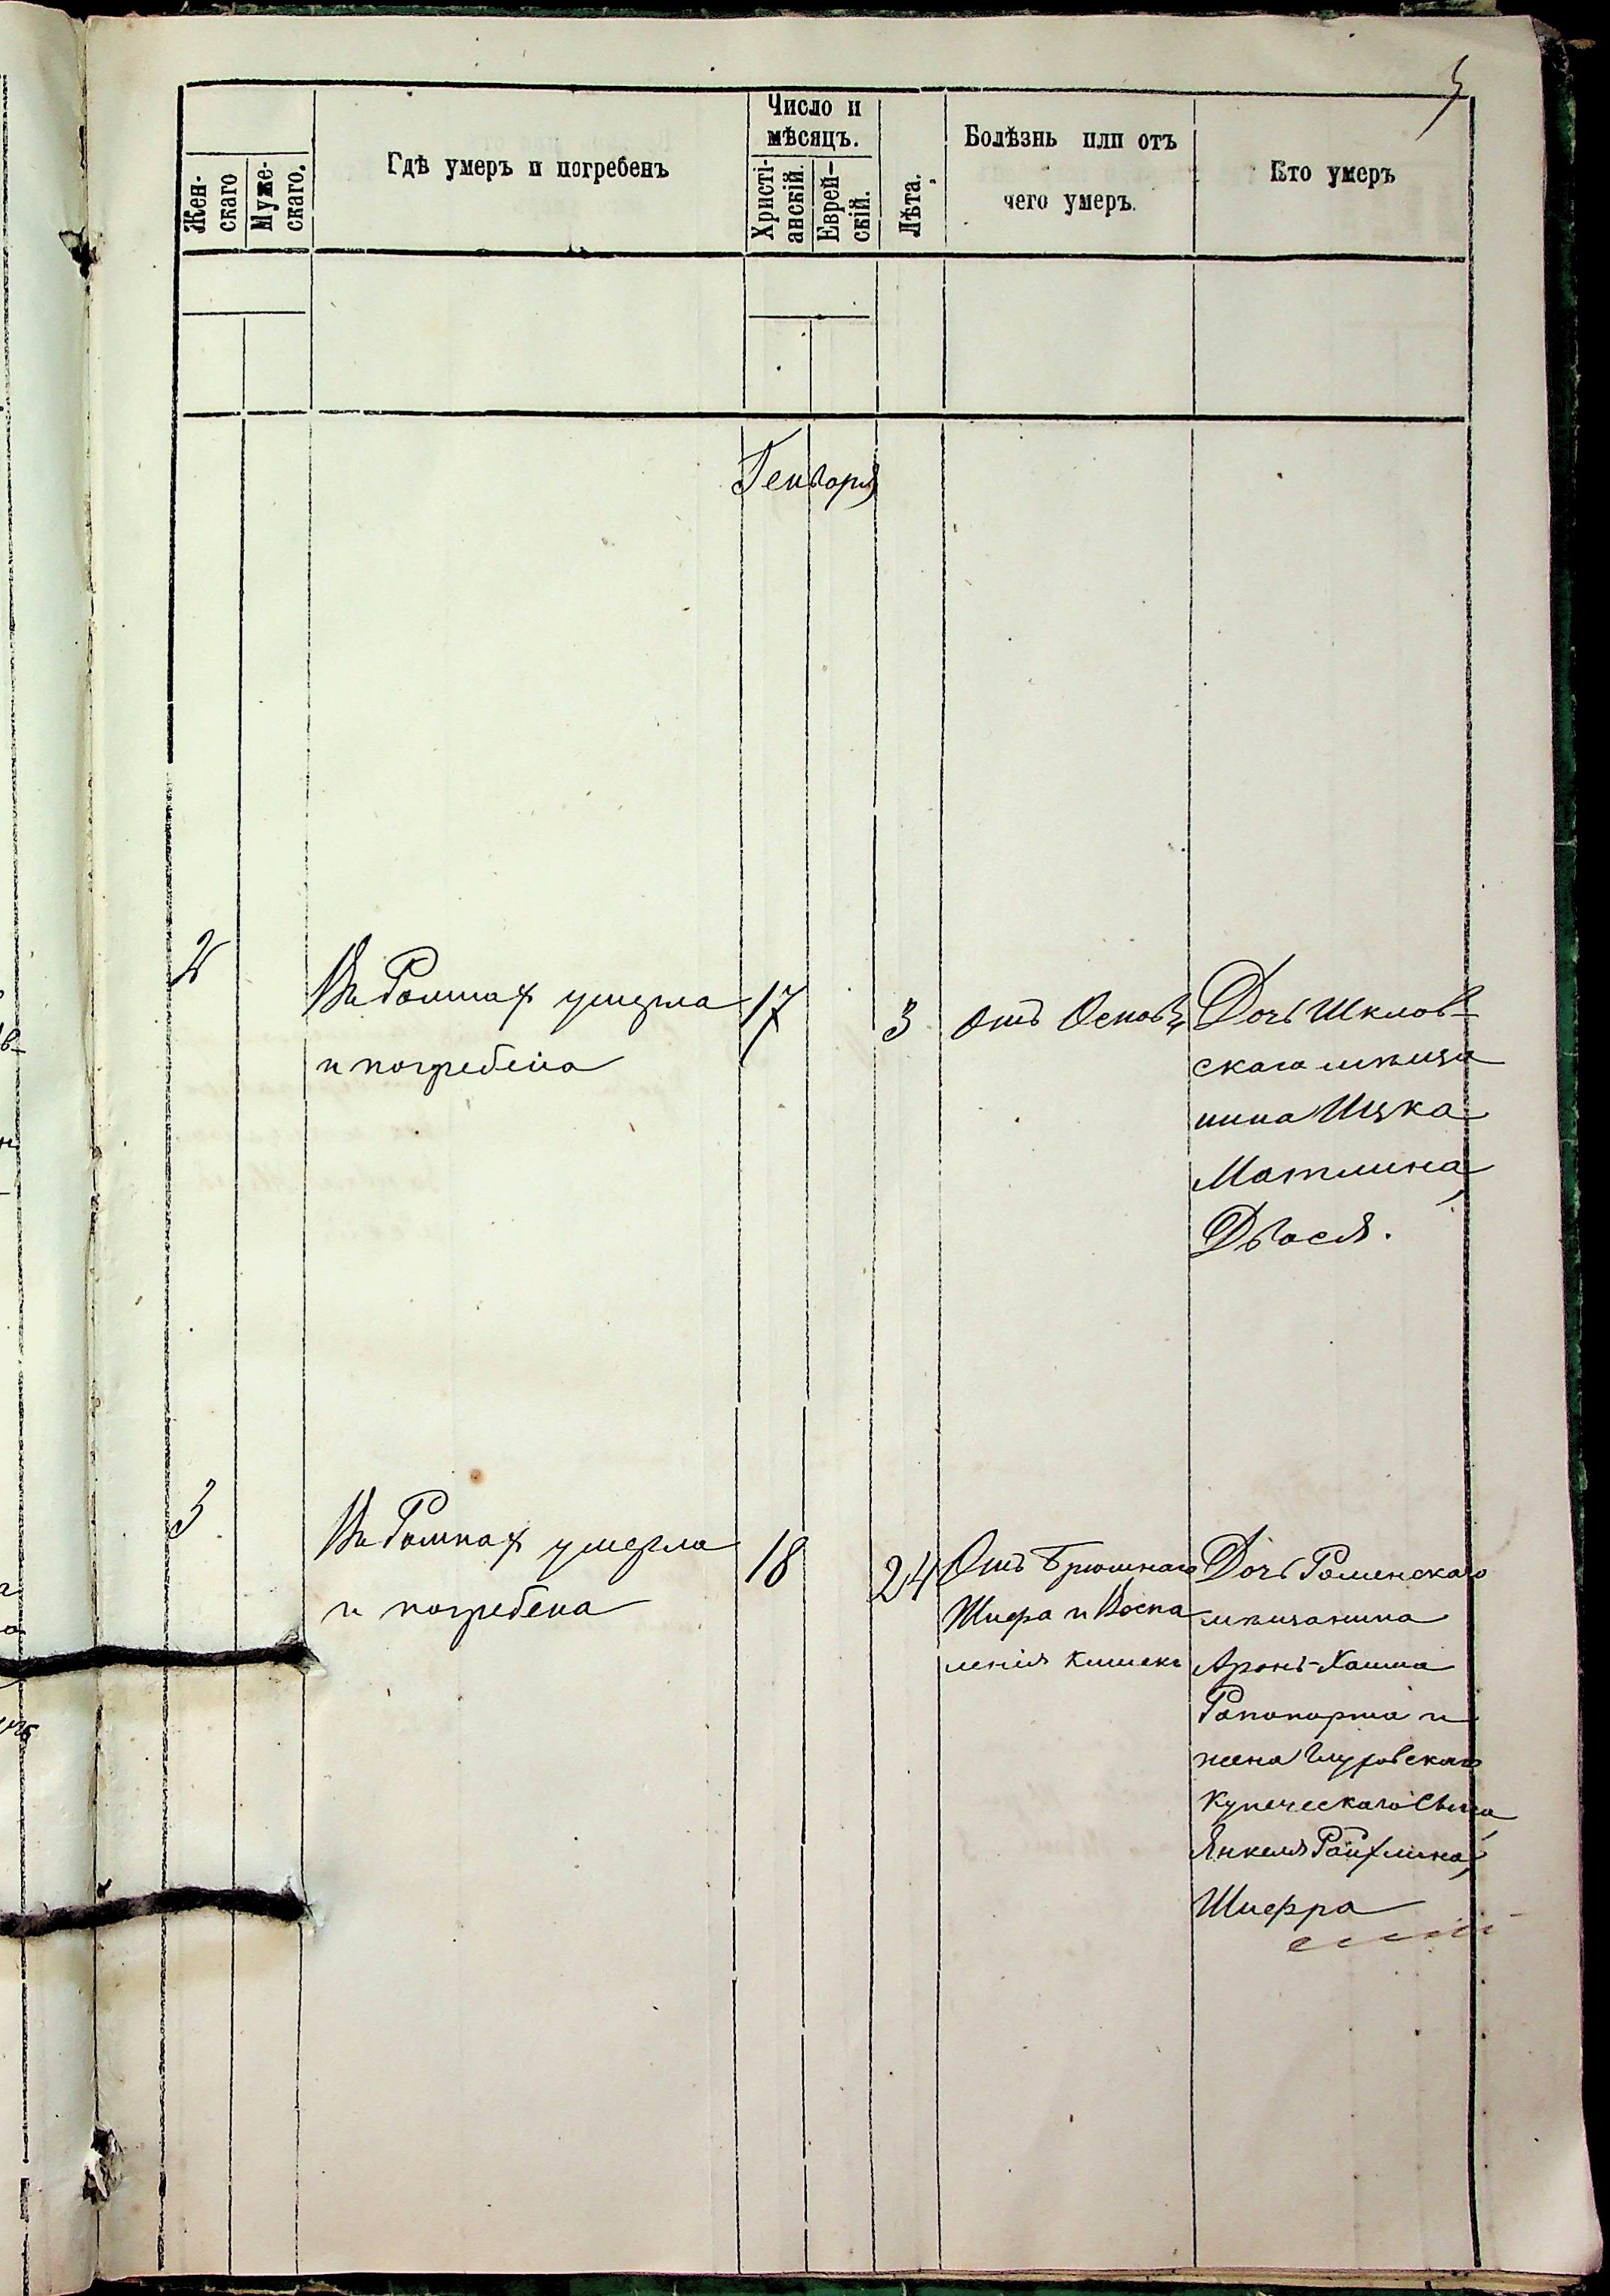 5
Жен-
скаго
Муже-
скаго.
Гдѣ умеръ и погребенъ
Число и
мѣсяцъ.
Христі-
анскій.
Еврей-
скій.
Лѣта.
Болѣзнь или отъ
чего умеръ.
Кто умеръ
Генваря
2
Въ Ромнах умерла
и погребена
17
3
отъ Оспы
Дочь Шклов-
скаго мѣща
нина Ицка
Матлина,
Двося.
3
Въ Ромнах умерла
и погребена
18
24
Отъ Брюшнаго
Тифа и Воспа
ленія кишекъ
Дочь Роменскаго
мѣщанина
Аронъ-Хаима
Рапопорта и
жена
Купеческаго Сына
Янкеля
Шифра